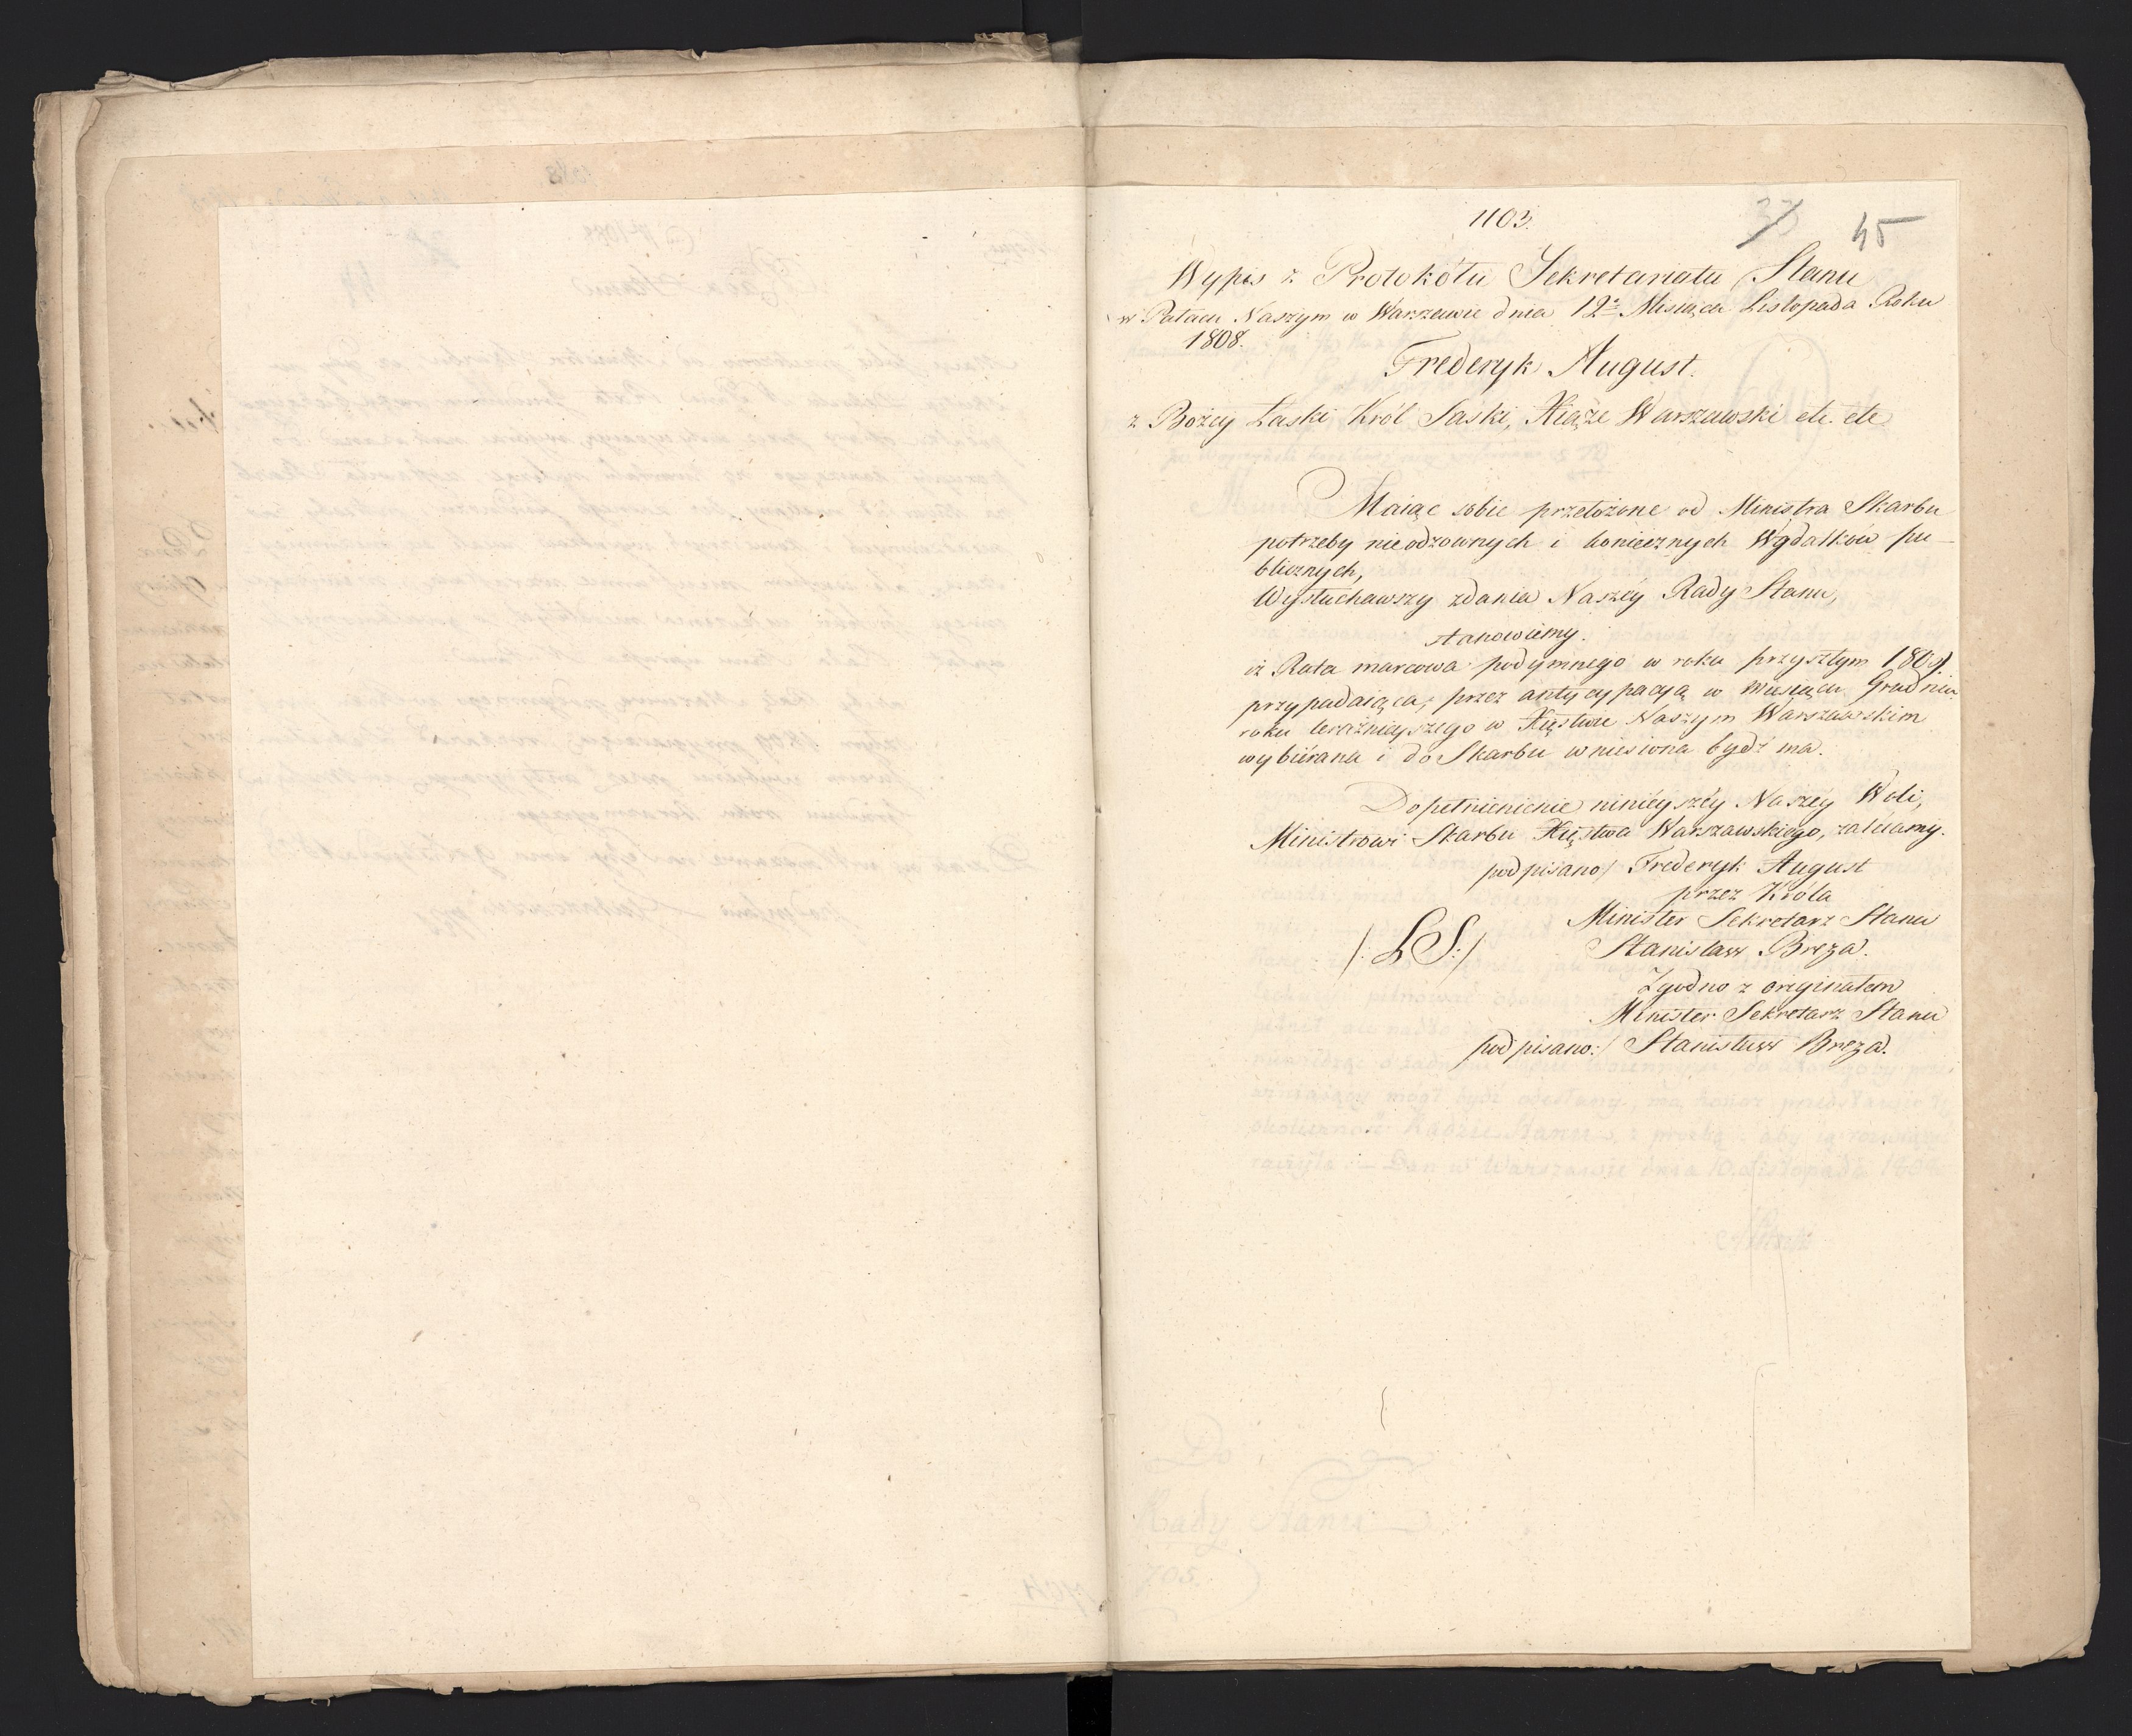 1103.
33 45
Wypis z Protokółu Sekretariatu Stanu
w Pałacu Naszym w Warszawie dnia 12º Miesiąca Listopada Roku
1808.
Frederyk August.
z Bożey Łaski Król Saski, Xiąże Warszawski etc. etc
Maiąc sobie przełożone od Ministra Skarbu
potrzeby nieodzownych i koniecznych Wydatków pu-
blicznych,
Wysłuchawszy zdania Naszéy Rady Stanu,
stanowiemy.
iż Rata marcowa podymnego w roku przyszłym 1809.
przypadaiąca, przez antycypacyą w Miesiącu Grudniu
roku teraźnieyszego w Xięstwie Naszym Warszawskim
wybiérana i do Skarbu wniesiona bydź ma.
Dopełnienienie ninieyszéy Naszéy Woli,
Ministrowi Skarbu Xięstwa Warszawskiego, zalecamy.
podpisano/ Frederyk August
przez Króla
Minister Sekretarz Stanu
/: L S :/ Stanisław Breza.
Zgodno z originałem
Minister Sekretarz Stanu
podpisano:/ Stanisław Breza.